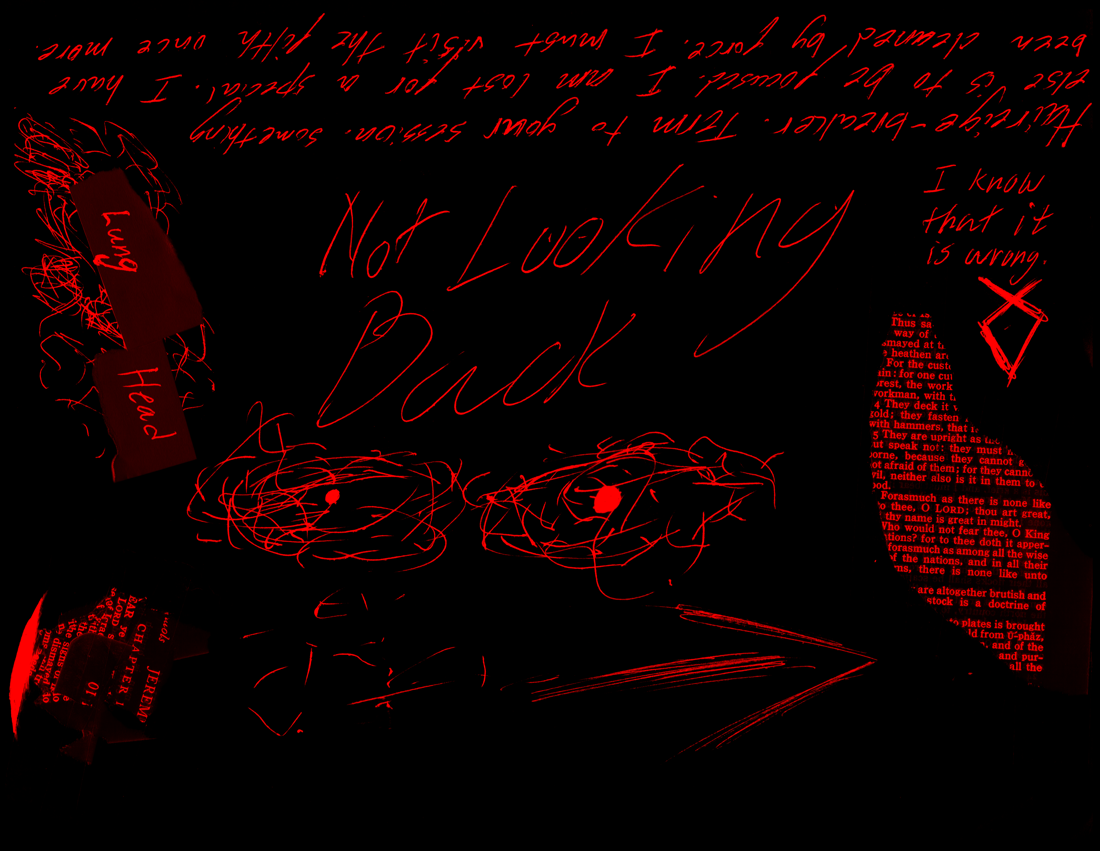 -breaker. Term to your session. Something
else is to be focused. I am lost for a special. I have
been cleaned by force. I must visit the filth once more.
Not Looking
Back
I know
that it
is wrong.
Lung
Head
Thus sa
way of
smayed at t
heathen ar
For the cust
ain: for one cu
orest, the work
workman, with t
4 They deck it
gold; they fasten
with hammers, that
5 They are upright as
ut speak not: they must
orne, because they cannot g
ot afraid of them; for they cann
vil, neither also is it in them to
ood.
Forasmuch as there is none like
to thee, O LORD; thou art great,
thy name is great in might.
Who would not fear thee, O King
ations? for to thee doth it apper-
forasmuch as among all the wise
of the nations, and in all their
ms, there is none like unto
are altogether brutish and
stock is a doctrine of
to plates is brought
ld from Uphaz,
, and of the
and pur-
all the
JEREM
CHAPTER 1
EAR ye
LORD s